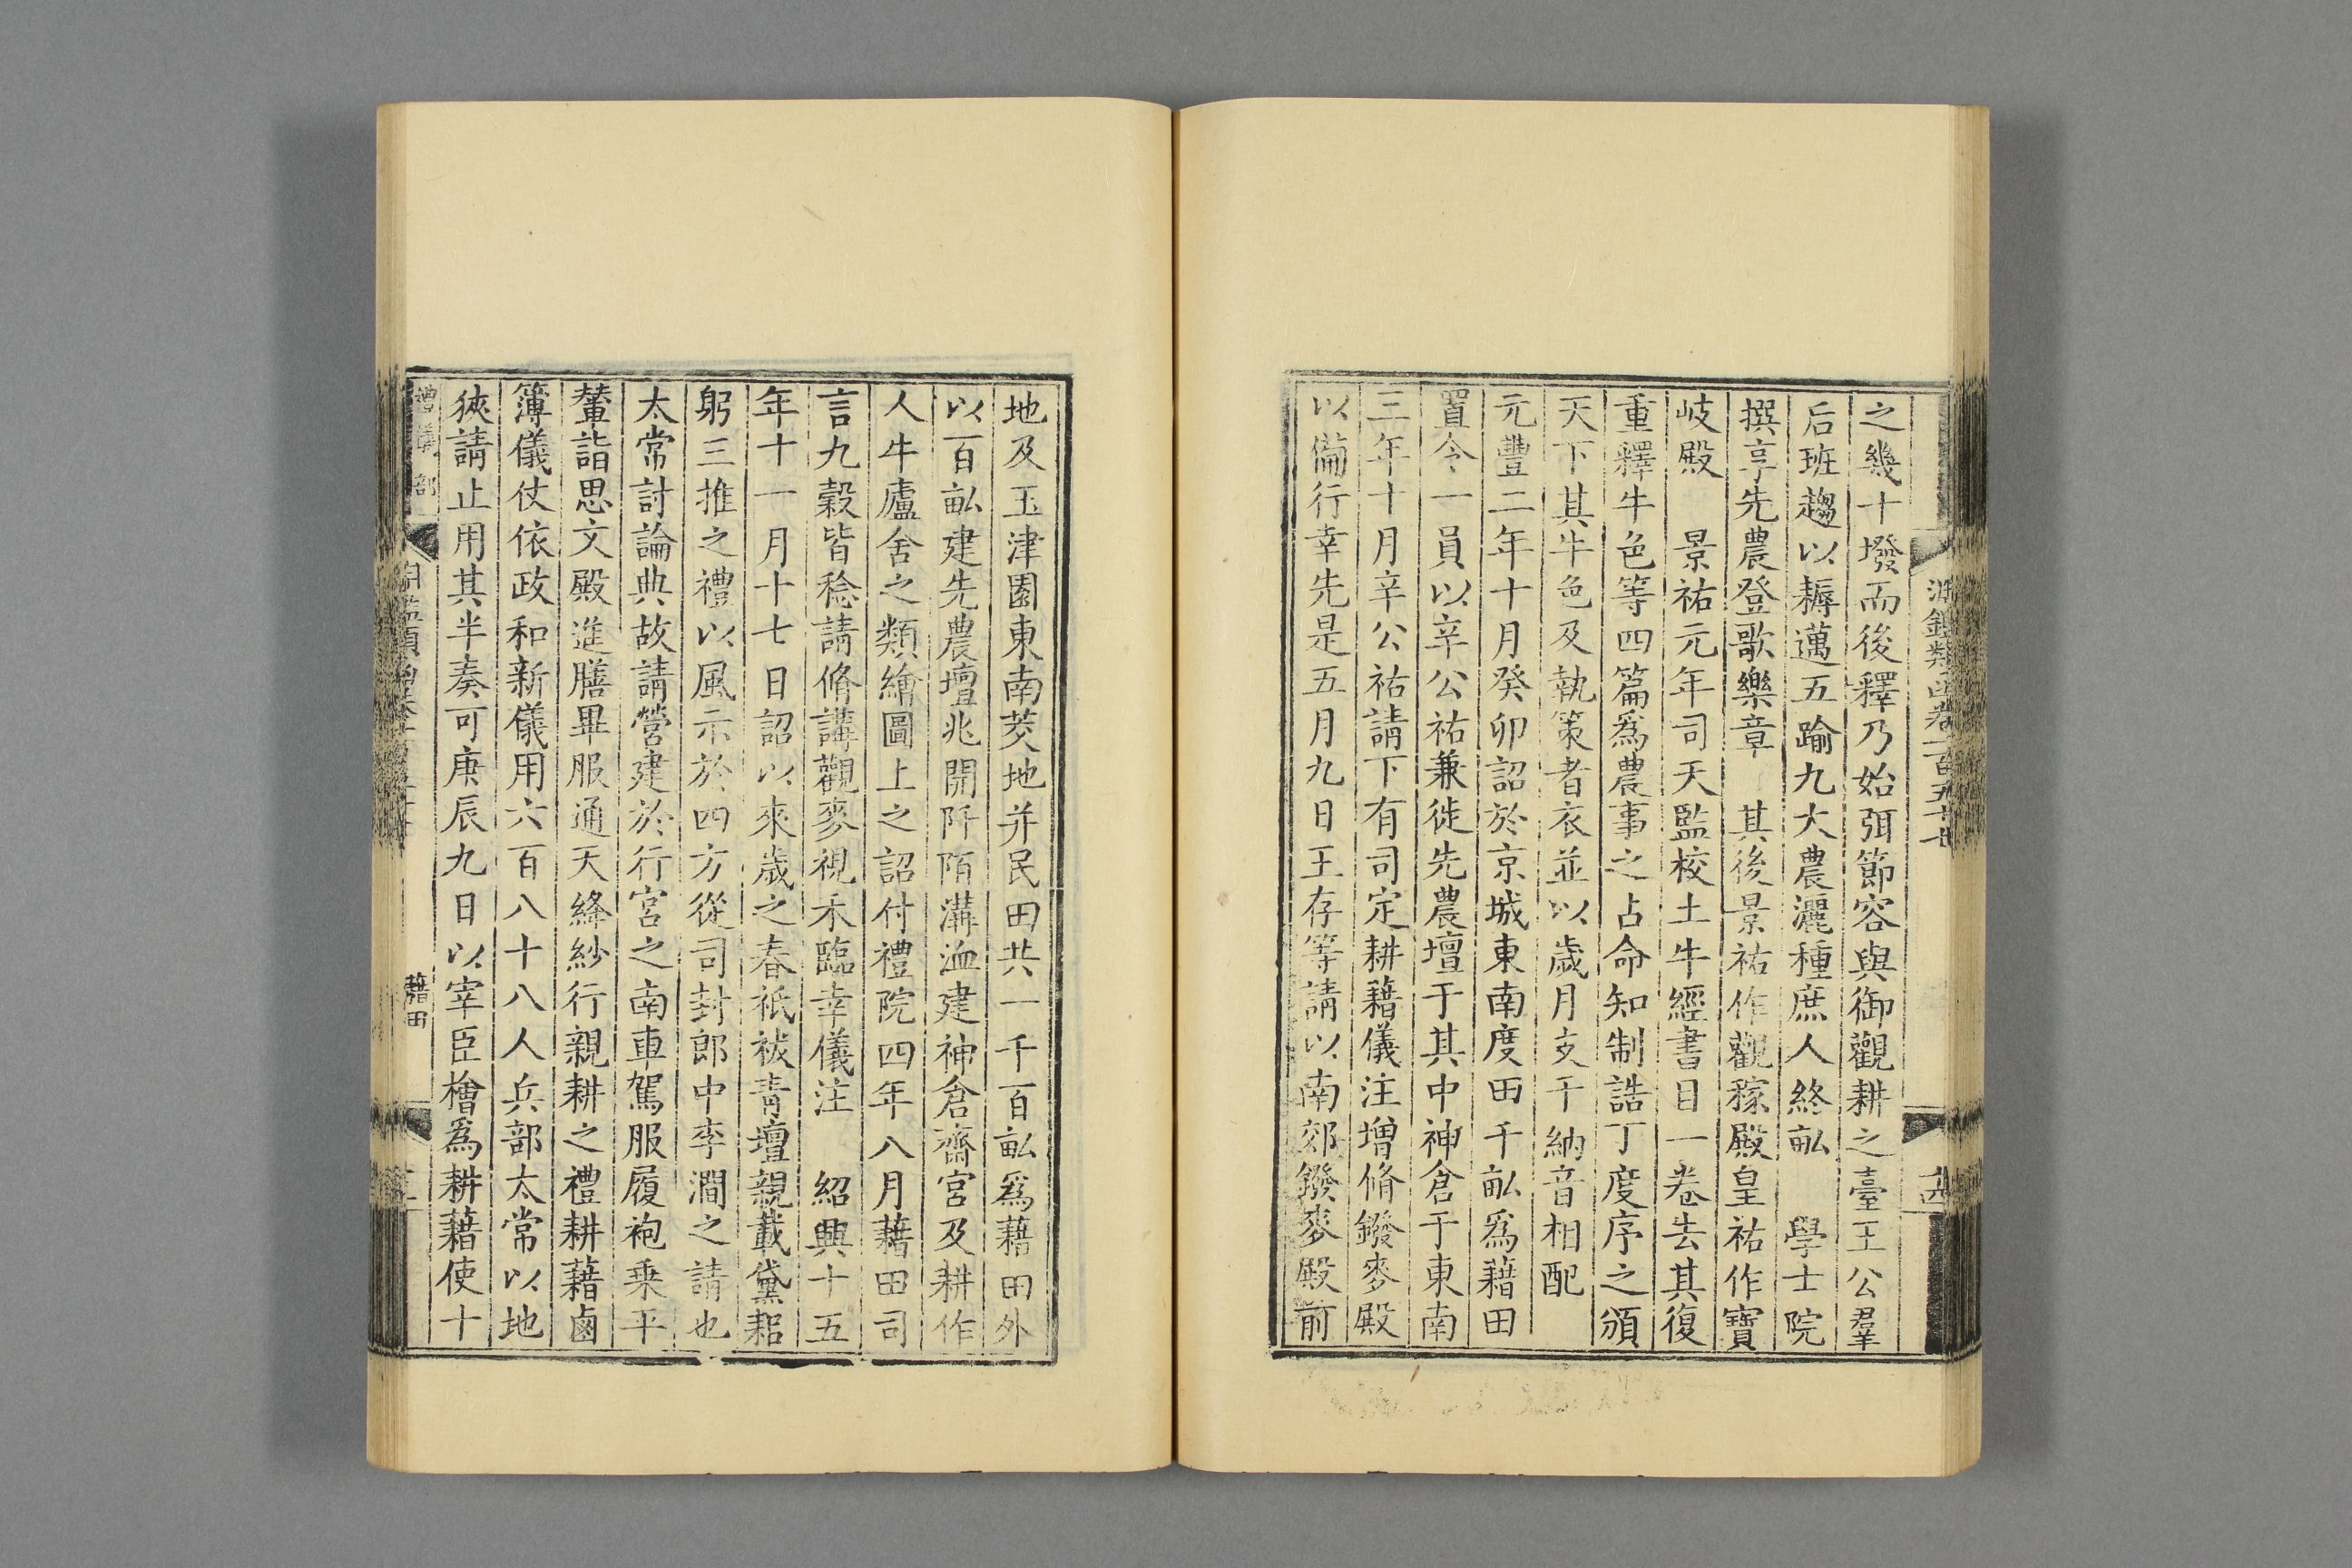 淵鑑類函卷一百五十七
之幾十墢而後釋乃始弭節容與御觀耕之臺王公羣
后班趨以耨邁五踰九大農灑種庶人終畝　學士院
撰享先農登歌樂章　其後景祐作觀稼殿皇祐作寶
岐殿　景祐元年司天監校土牛經書目一卷去其復
重釋牛色等四篇爲農事之占命知制誥丁度序之頒
天下其牛色及執策者衣並以歲月支干納音相配
元豐二年十月癸卯詔於京城東南度田千畝爲藉田
置令一員以辛公祐兼徙先農壇于其中神倉于東南
三年十月辛公祐請下有司定耕藉儀注增脩鏺麥殿
以備行幸先是五月九日王存等請以南郊鏺麥殿前
地及玉津園東南茭地并民田共一千百畝爲藉田外
以百畝建先農壇兆開阡陌溝洫建神倉齋宮及耕作
人牛廬舍之類繪圖上之詔付禮院四年八月藉田司
言九穀皆稔請脩講觀麥視禾臨幸儀注　紹興十五
年十一月十七日詔以來歲之春祗祓青壇親載黛耜
躬三推之禮以風示於四方從司封郎中李澗之請也
太常討論典故請營建於行宮之南車駕服履袍乗平
輦詣思文殿進膳畢服通天絳紗行親耕之禮耕藉鹵
簿儀仗依政和新儀用六百八十八人兵部太常以地
狹請止用其半奏可庚辰九日以宰臣檜爲耕藉使十
禮儀部
藉田